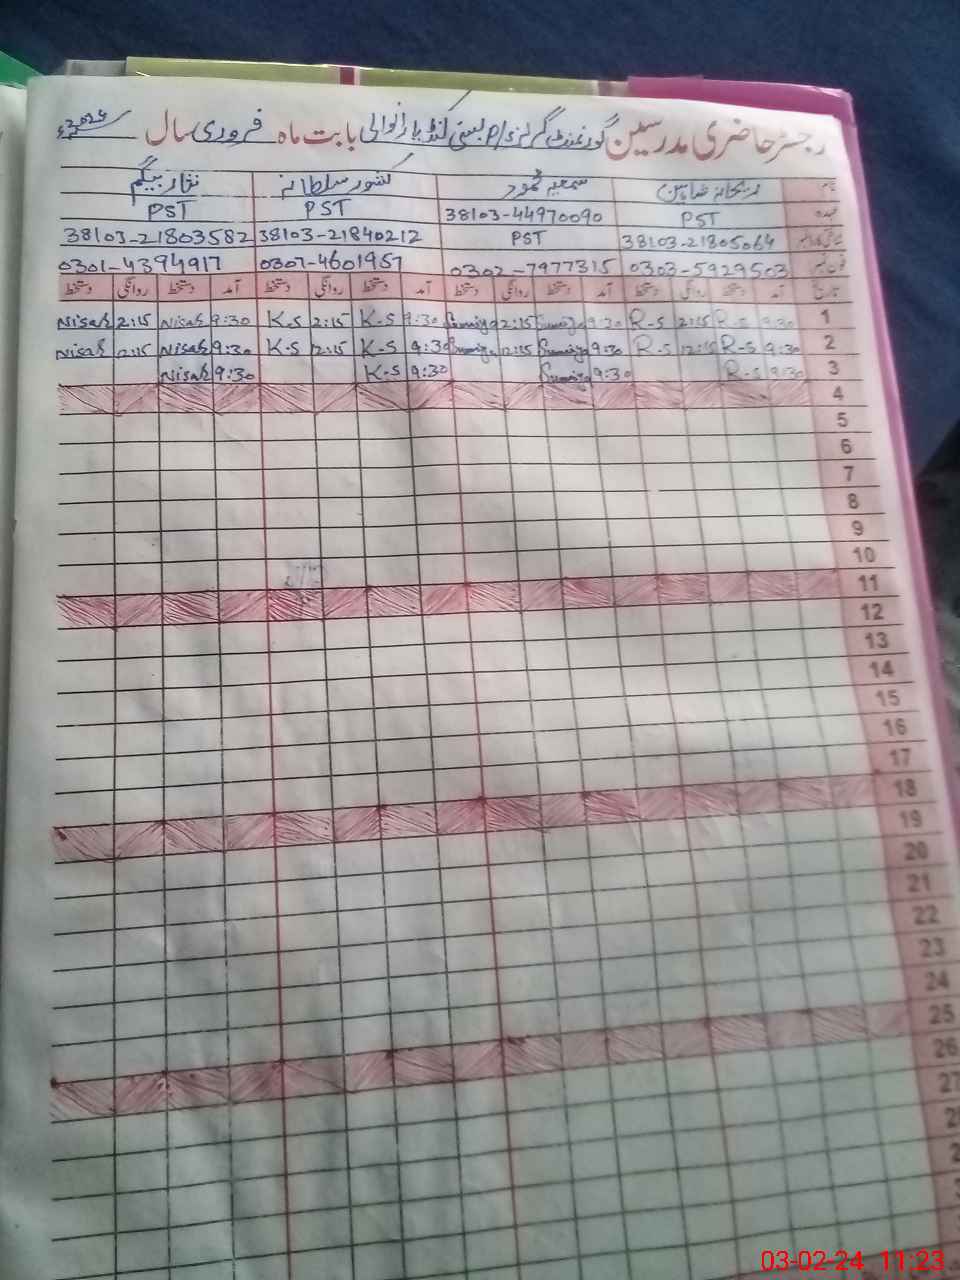 رجسٹر حاضری مدرسین گورنمنٹ گرلز P/S بستی کنڈیارانوالی بابت ماہ فروری سال 2024ء
نام ریحانہ شاہین سمعیہ محمود کشور سلطانہ نثار بیگم
عہدہ PST 38103-44970090 PST PST
38103-21805064 PST 38103-21840212 38103-21803582
فون نمبر 0303-5929503 0302-7977315 0307-4601957 0301-4394917
تاریخ آمد دستخط روانگی دستخط آمد دستخط روانگی دستخط آمد دستخط روانگی دستخط آمد دستخط روانگی دستخط
1 9:30 R-S 2:15 R-S 9:30 Sumiya 2:15 Sumiya 9:30 K-S 2:15 K-S 9:30 Nisar 2:15 Nisar
2 9:30 R-S 12:15 R-S 9:30 Sumiya 12:15 Sumiya 9:30 K-S 12:15 K-S 9:30 Nisar 12:15 Nisar
3 9:30 R-S 9:30 Sumiya 9:30 K-S 9:30 Nisar
4
5
6
7
8
9
10
11
12
13
14
15
16
17
18
19
20
21
22
23
24
25
26
27
03-02-24 11:23